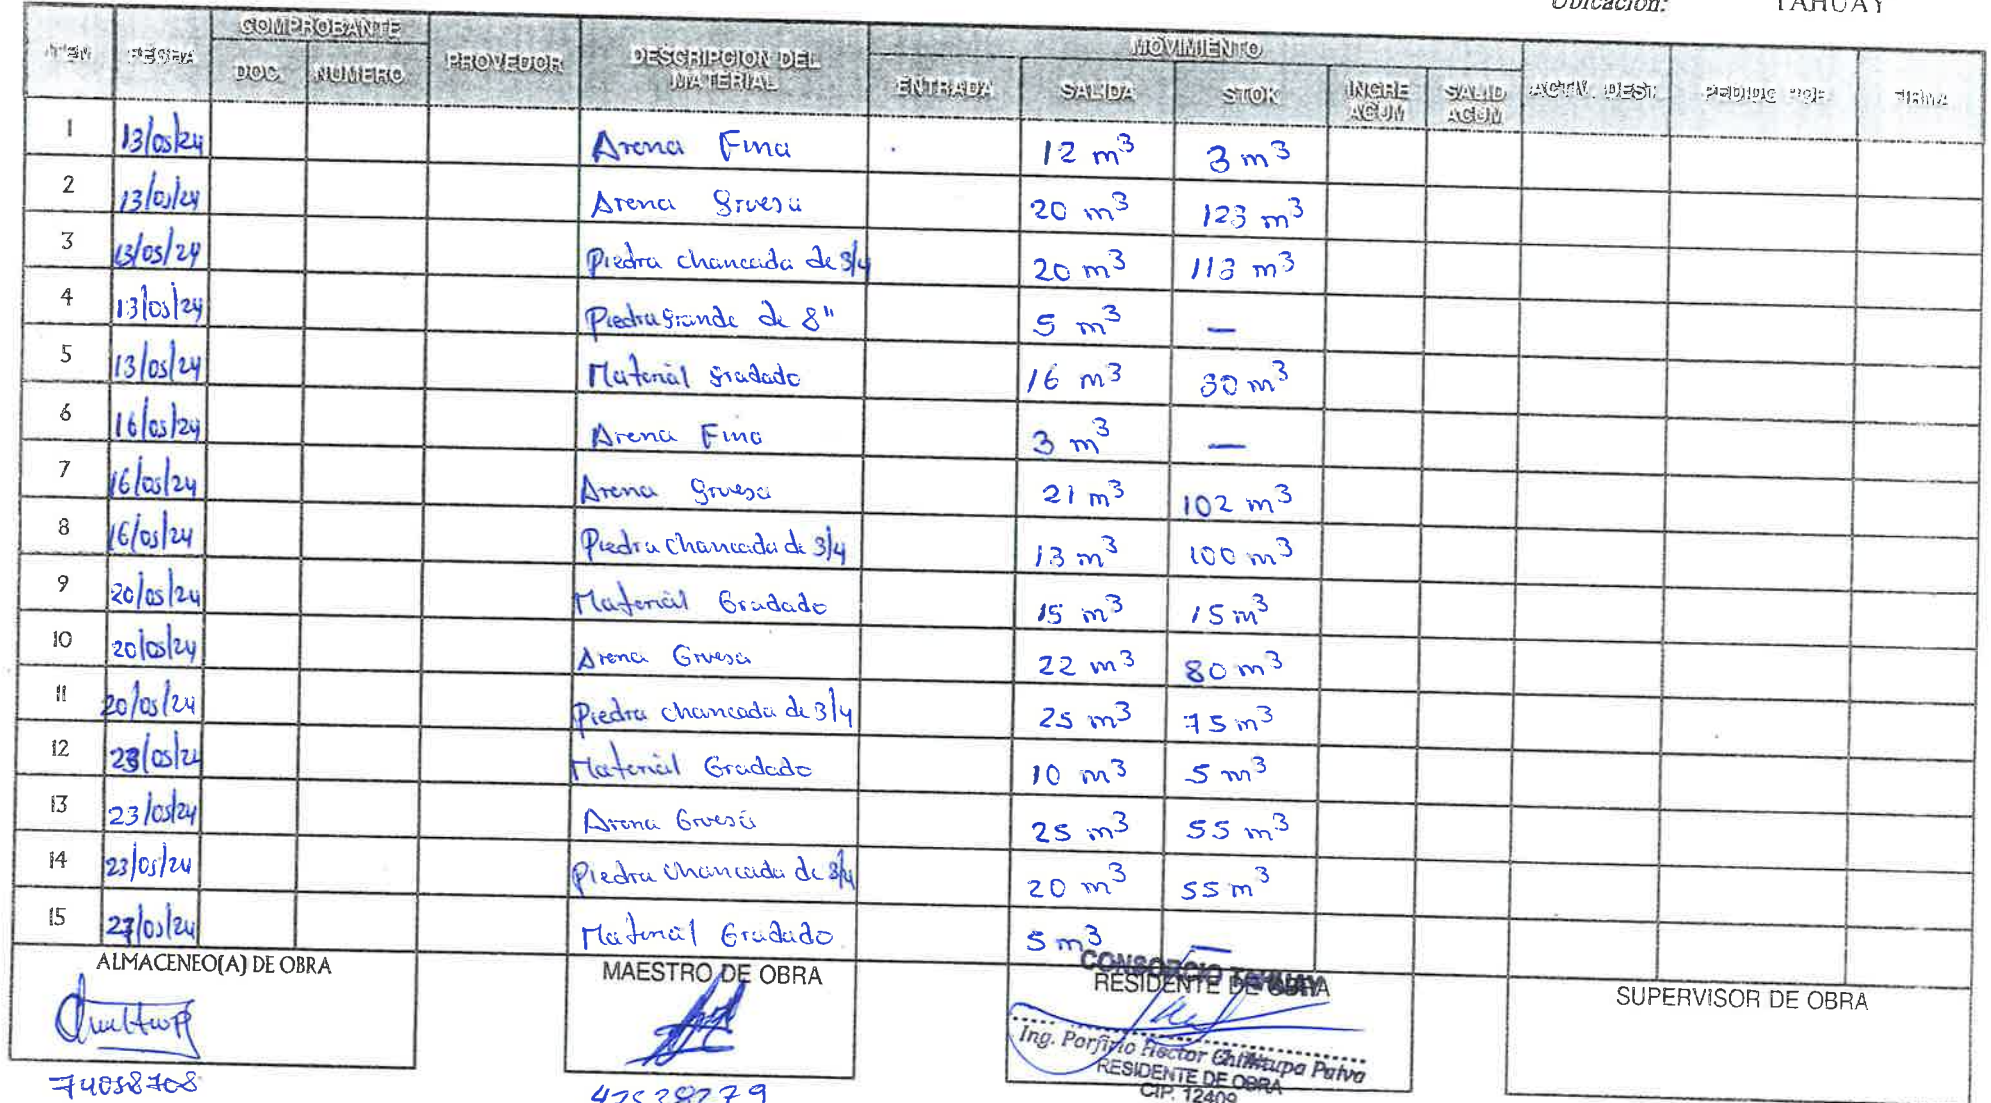 Ubicación: TAHUAY
COMPROBANTE MOVIMIENTO
ITEM FECHA DOC. NUMERO PROVEDOR DESCRIPCION DEL MATERIAL ENTRADA SALIDA STOK INGRE ACUM SALID ACUM ACTIV. DEST. PEDIDO POR FIRMA
1 13/05/24 Arena Fina 12 m³ 3 m³
2 13/05/24 Arena gruesa 20 m³ 123 m³
3 13/05/24 Piedra chancada de 3/4 20 m³ 113 m³
4 13/05/24 Piedra grande de 8" 5 m³ —
5 13/05/24 Material gradado 16 m³ 30 m³
6 16/05/24 Arena Fina 3 m³ —
7 16/05/24 Arena gruesa 21 m³ 102 m³
8 16/05/24 Piedra chancada de 3/4 13 m³ 100 m³
9 20/05/24 Material Gradado 15 m³ 15 m³
10 20/05/24 Arena Gruesa 22 m³ 80 m³
11 20/05/24 Piedra chancada de 3/4 25 m³ 75 m³
12 23/05/24 Material Gradado 10 m³ 5 m³
13 23/05/24 Arena Gruesa 25 m³ 55 m³
14 23/05/24 Piedra chancada de 3/4 20 m³ 55 m³
15 27/05/24 Material Gradado 5 m³ —
ALMACENEO(A) DE OBRA MAESTRO DE OBRA RESIDENTE DE OBRA SUPERVISOR DE OBRA
CONSORCIO TAHUAY
Ing. Porfirio Hector
RESIDENTE DE OBRA
CIP. 12409
74058708 42528279